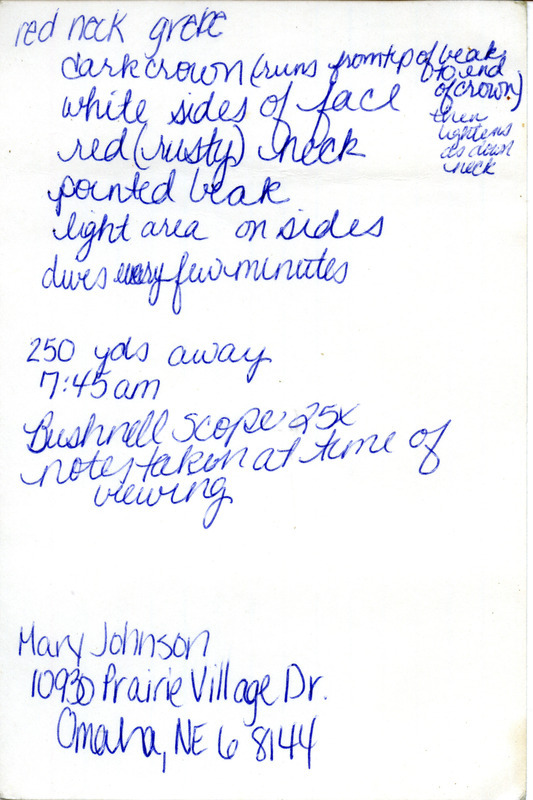 red neck grebe
dark crown (runs from tip of beak
to end
of crown)
then
lightens
as down
neck
white sides of face
red (rusty) neck
pointed beak
light area on sides
dives every few minutes
250 yds away
7:45 am
Bushnell Scope 25x
notes taken at time of
viewing
Mary Johnson
10930 Prairie Village Dr.
Omaha, NE 68144